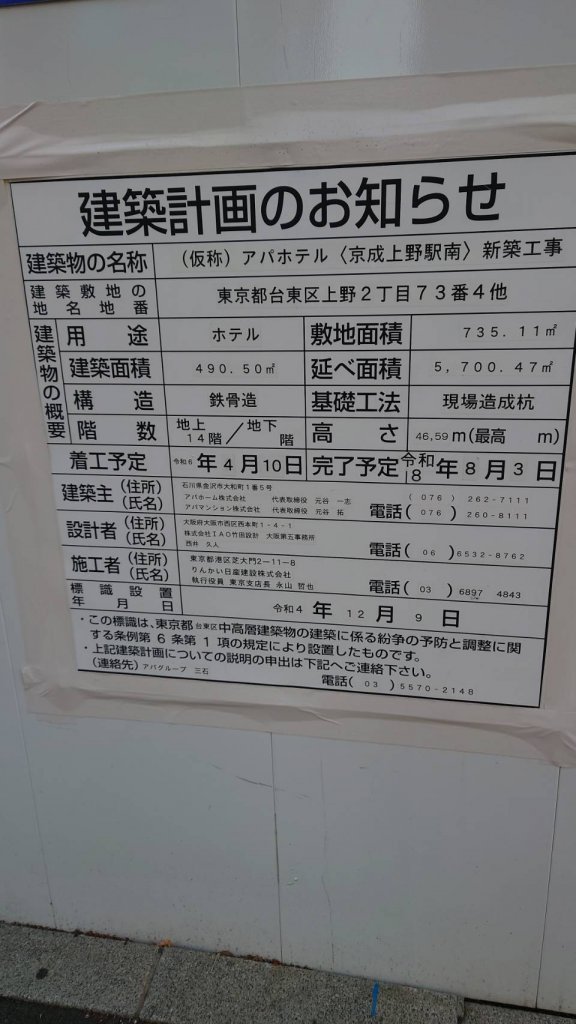 建築計画のお知らせ
建築物の名称 (仮称) アパホテル〈京成上野駅南〉新築工事
建築敷地の地名地番 東京都台東区上野2丁目73番4他
建築物の概要
用途 ホテル 敷地面積 735.11㎡
建築面積 490.50㎡ 延べ面積 5,700.47㎡
構造 鉄骨造 基礎工法 現場造成杭
階数 地上14階/地下 階 高さ 46,59m(最高 m)
着工予定 令和6年4月10日 完了予定 令和8年8月3日
建築主(住所)(氏名) 石川県金沢市大和町1番5号
アパホーム株式会社 代表取締役 元谷 一志 (076) 262-7111
アパマンション株式会社 代表取締役 元谷 拓 電話(076) 260-8111
設計者(住所)(氏名) 大阪府大阪市西区西本町1-4-1
株式会社IAO竹田設計 大阪第五事務所
西井 久人 電話(06)6532-8762
施工者(住所)(氏名) 東京都港区芝大門2-11-8
りんかい日産建設株式会社
執行役員 東京支店長 永山 哲也 電話(03) 6897 4843
標識設置年月日 令和4年12月9日
・この標識は、東京都台東区中高層建築物の建築に係る紛争の予防と調整に関
する条例第6条第1項の規定により設置したものです。
・上記建築計画についての説明の申出は下記へご連絡下さい。
(連絡先) アパグループ 三石 電話(03)5570-2148